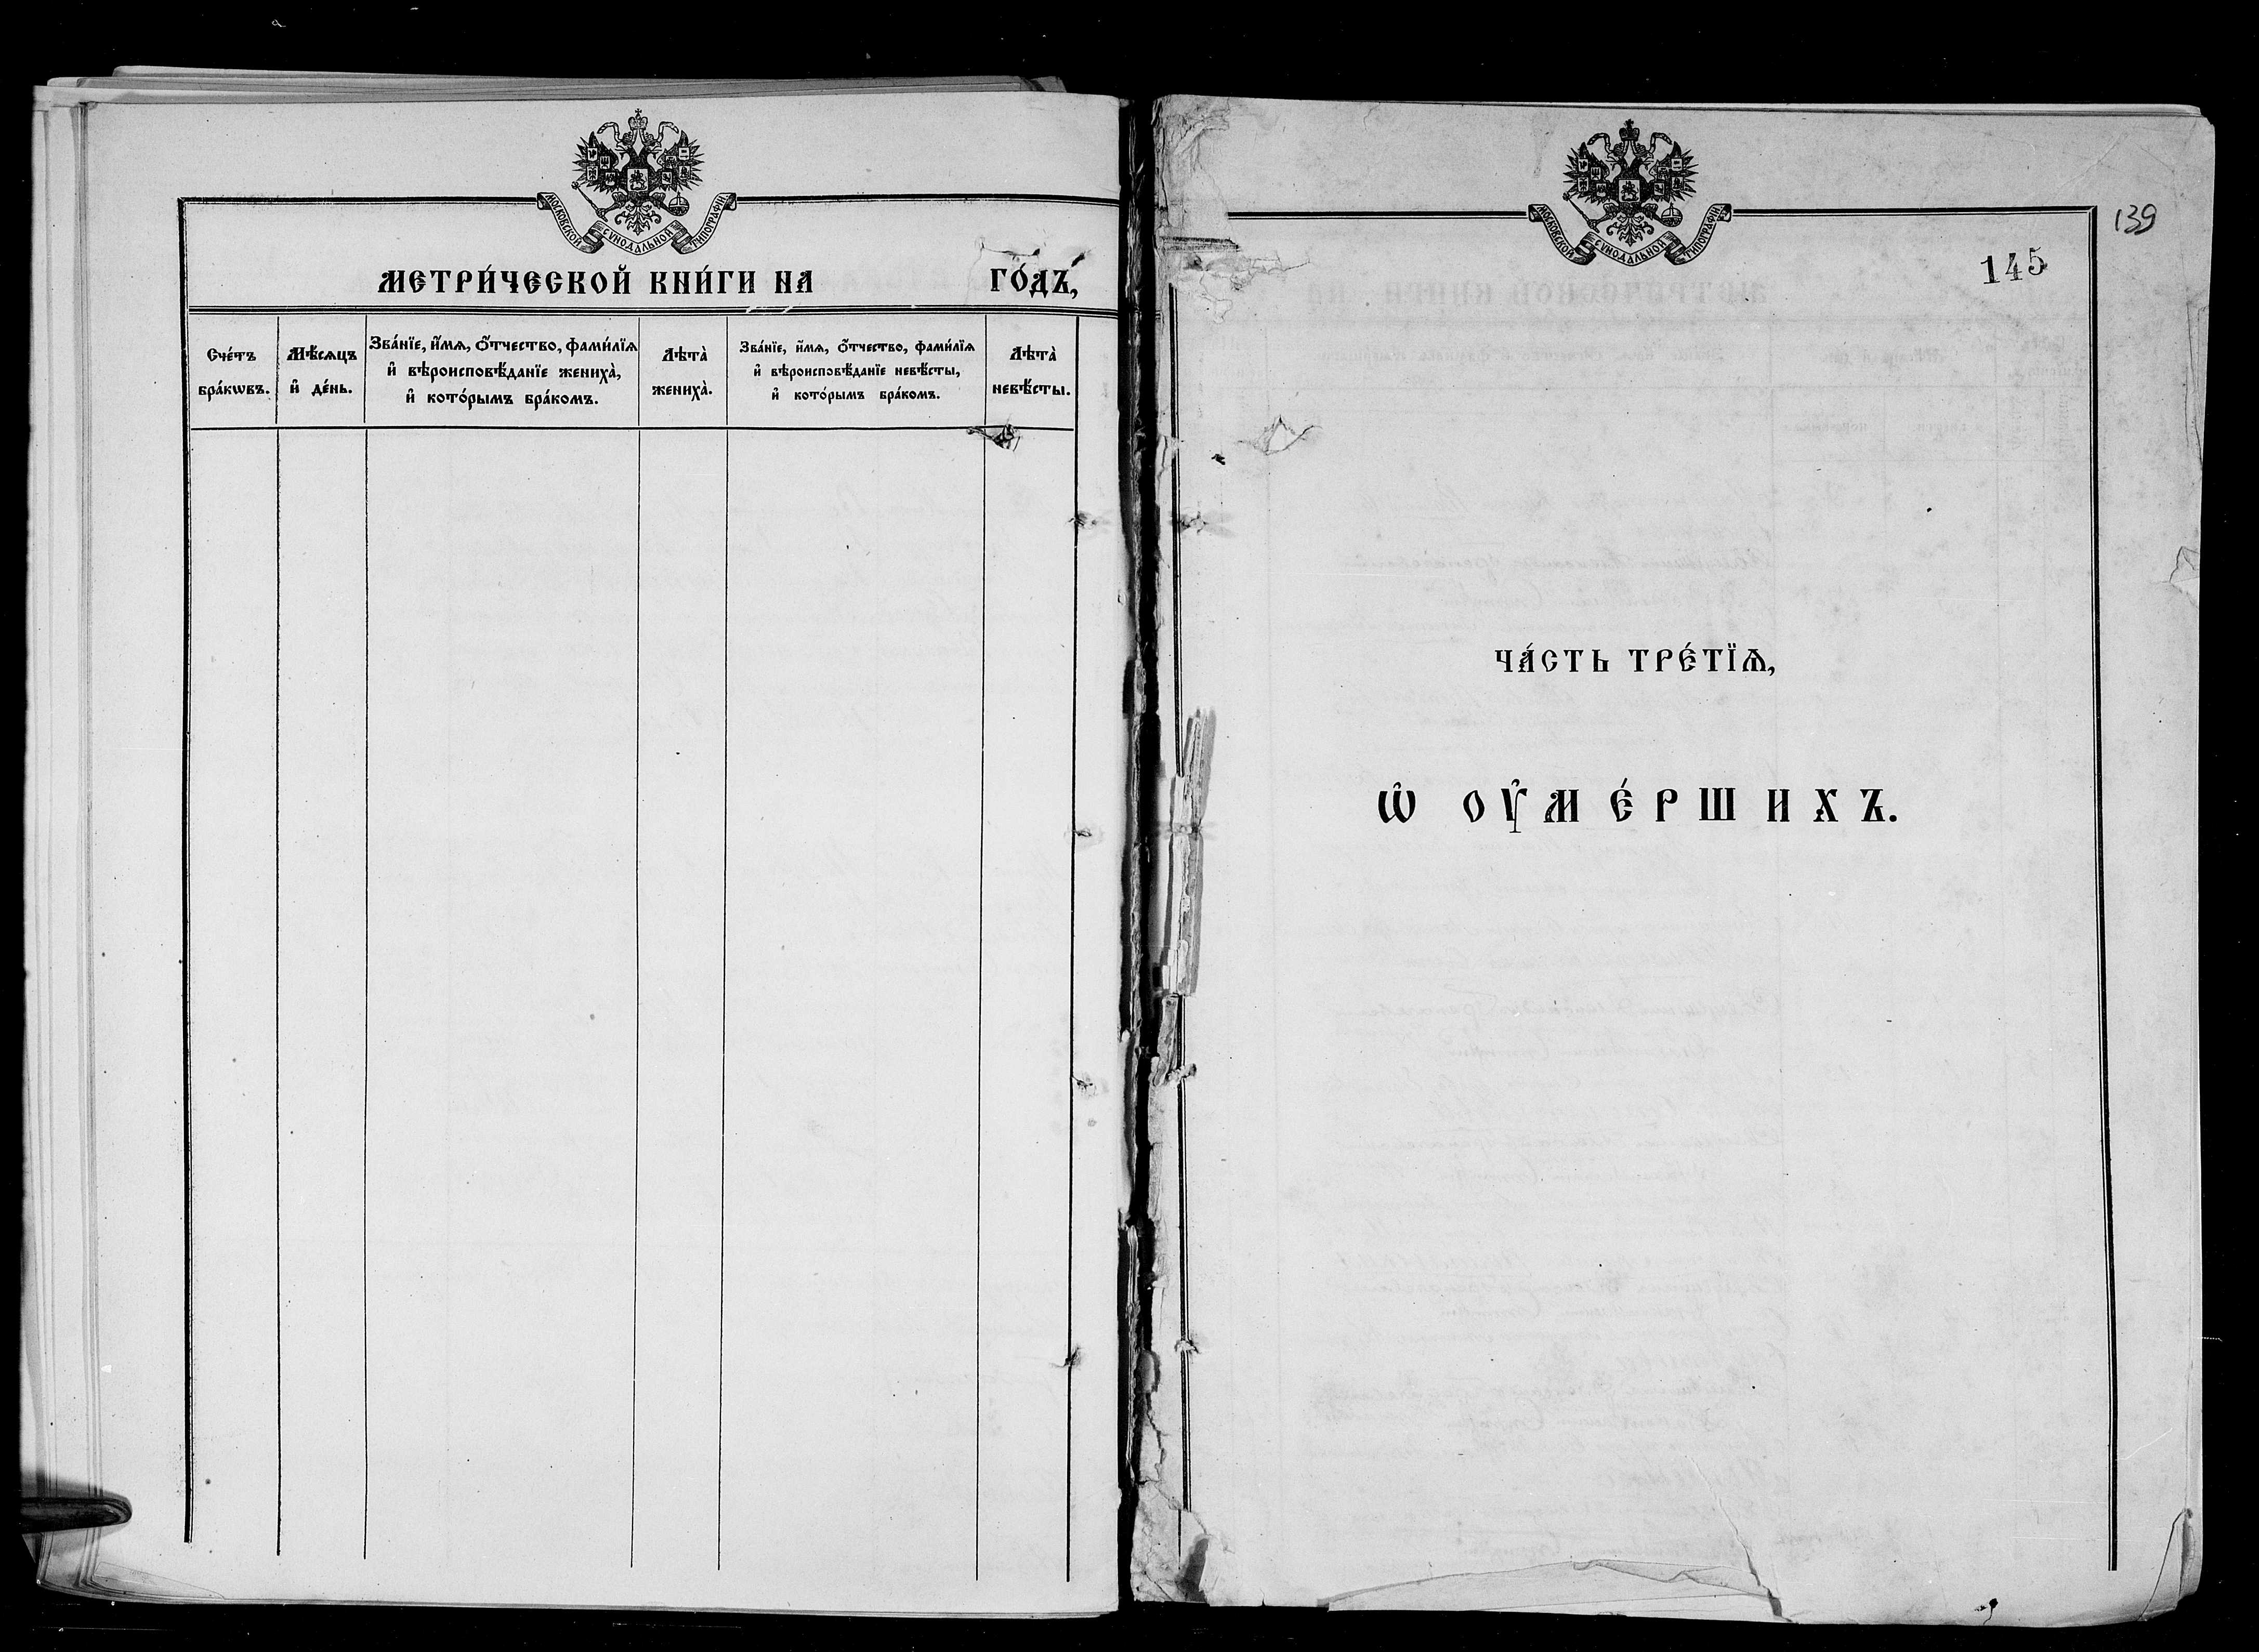 МОСКОВСКОЙ СѴНОДАЛЬНОЙ ТИПОГРАФІИ
МЕТРИ́ЧЕСКОЙ КНИ́ГИ НА ГО́ДЪ,
Сче́тъ бра́кѡвъ.
Мѣ́сяцъ и҆ де́нь.
Зва́нїе, и҆́мѧ, ѻ҆́тчество, фами́лїѧ
и҆ вѣроисповѣ́данїе жениха̀,
и҆ кото́рымъ бра́комъ.
Лѣта̀ жениха̀.
Зва́нїе, и҆́мѧ, ѻ҆́тчество, фами́лїѧ
и҆ вѣроисповѣ́данїе невѣ́сты,
и҆ кото́рымъ бра́комъ.
Лѣта̀ невѣ́сты.
МОСКОВСКОЙ СѴНОДАЛЬНОЙ ТИПОГРАФІИ
139
145
ЧА́СТЬ ТРЕ́ТЇѦ,
Ѡ҆ ОУ҆МЕ́РШИХЪ.